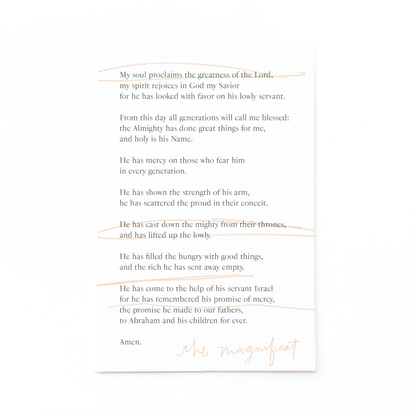 My soul proclaims the greatness of the Lord,
my spirit rejoices in God my Savior
for he has looked with favor on his lowly servant.
From this day all generations will call me blessed:
the Almighty has done great things for me,
and holy is his Name.
He has mercy on those who fear him
in every generation.
He has shown the strength of his arm,
he has scattered the proud in their conceit.
He has cast down the mighty from their thrones,
and has lifted up the lowly.
He has filled the hungry with good things,
and the rich he has sent away empty.
He has come to the help of his servant Israel
for he has remembered his promise of mercy,
the promise he made to our fathers,
to Abraham and his children for ever.
Amen.
the magnificat